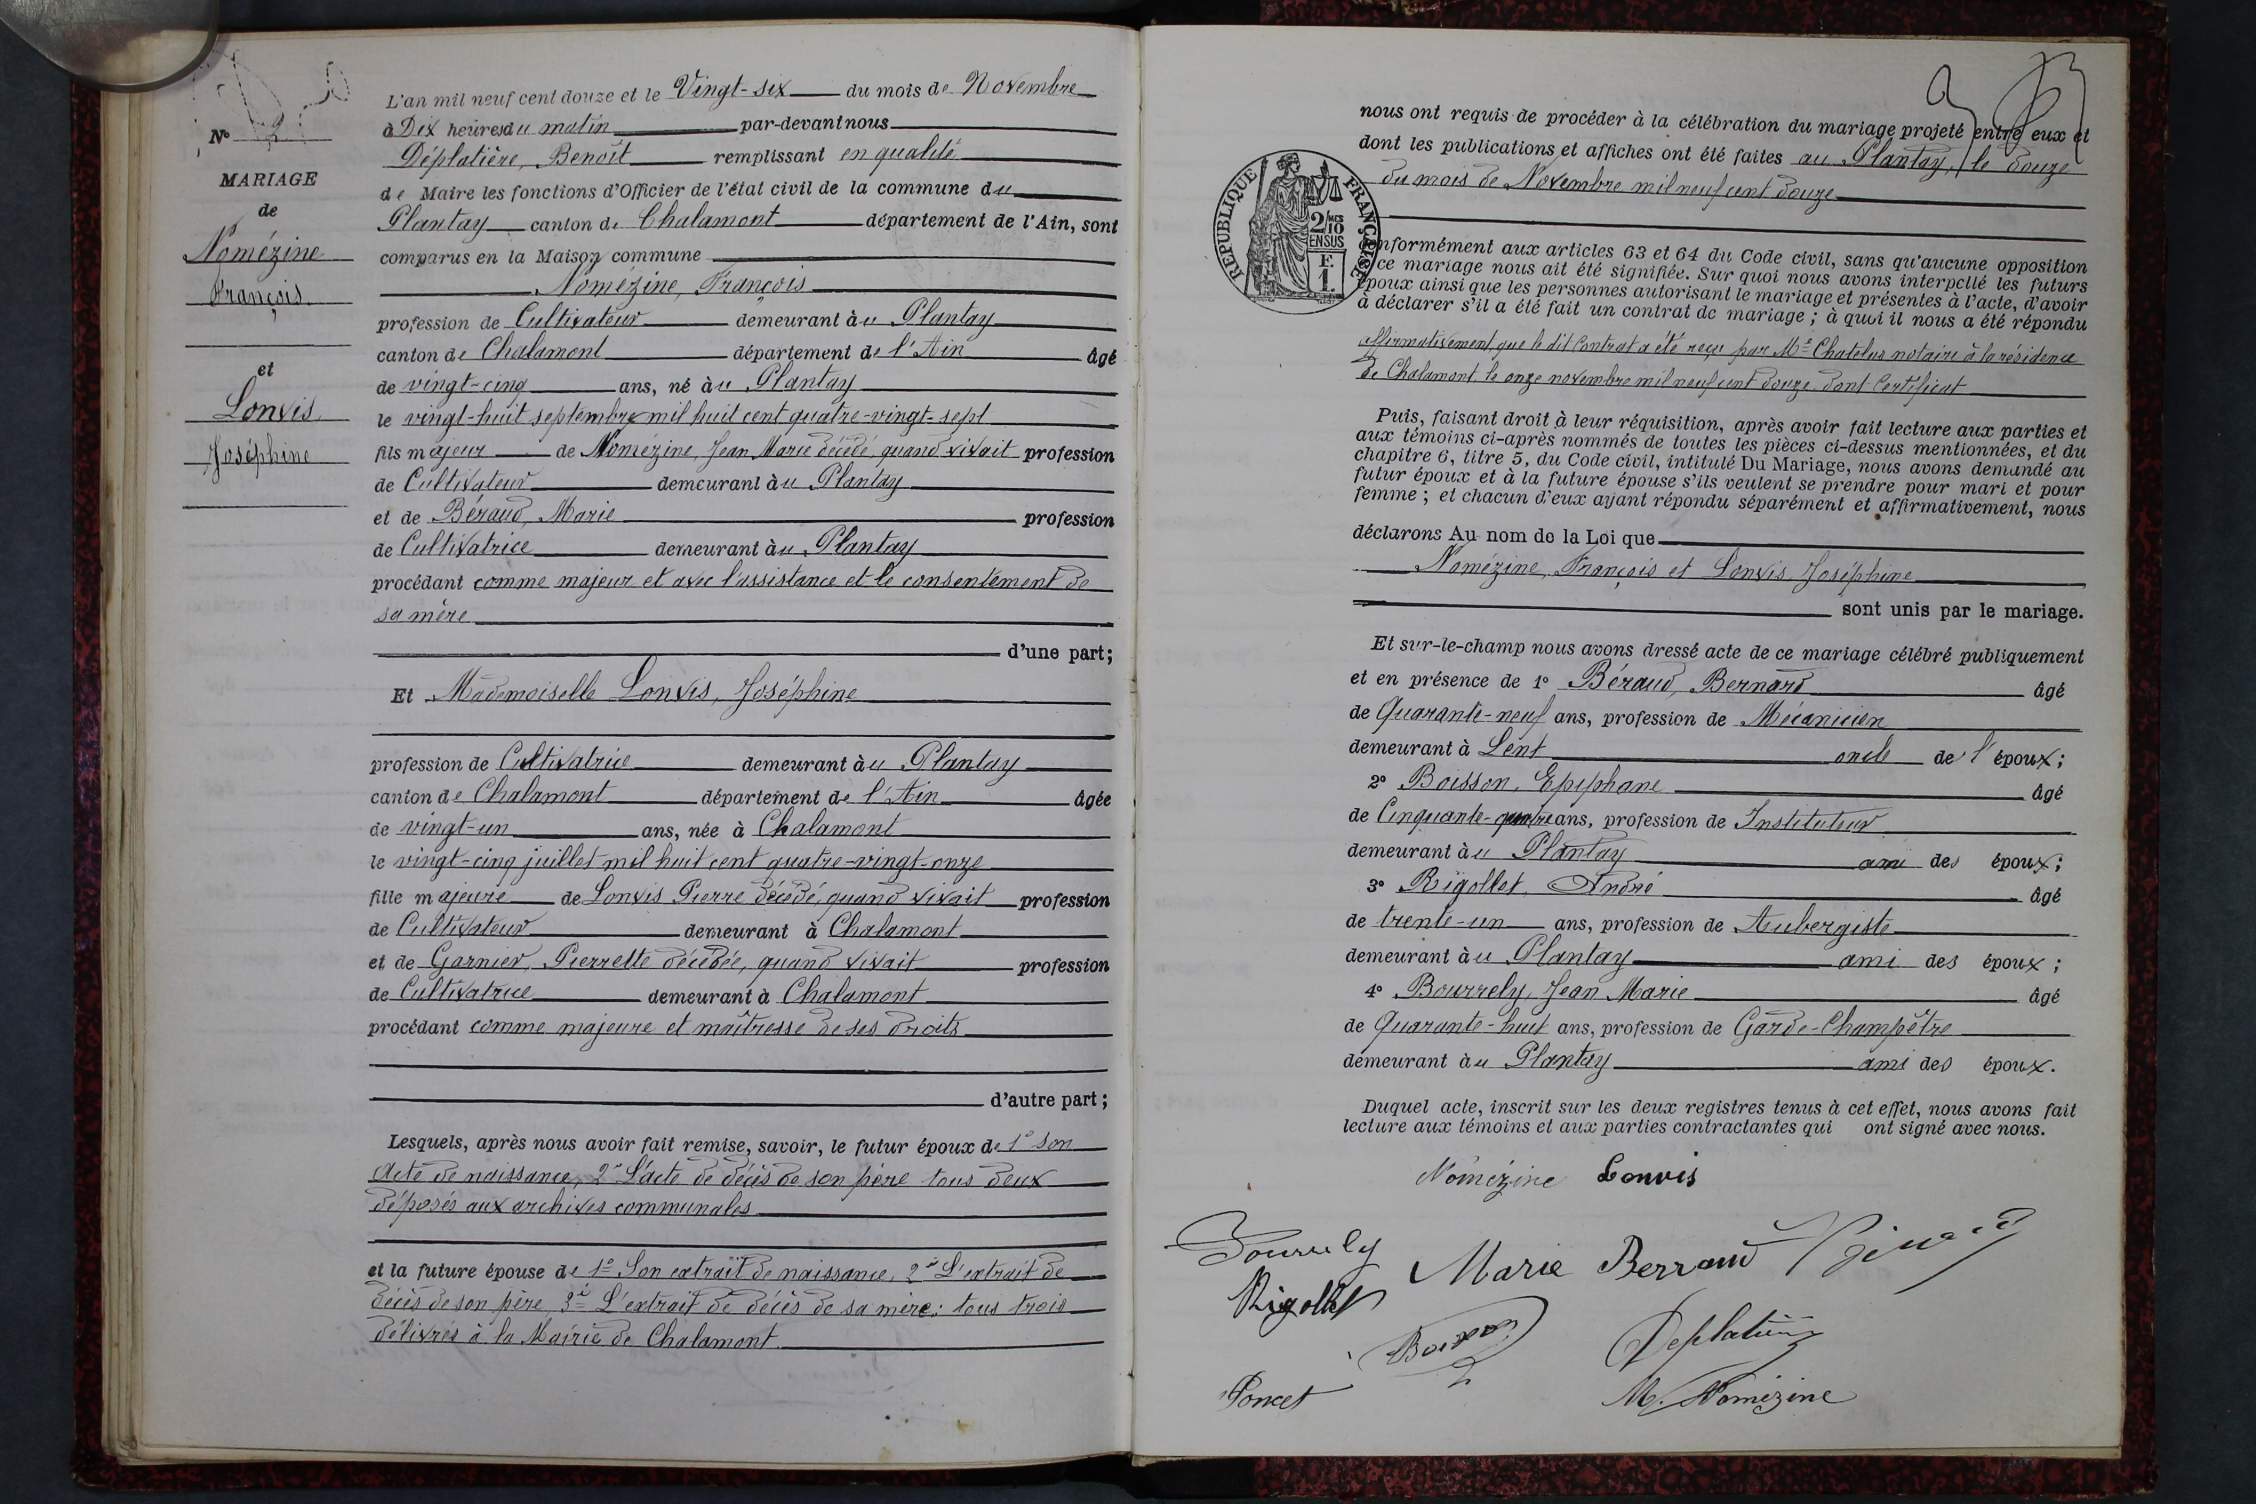 N° 2
MARIAGE
de
Nomézine
François
et
Lonvis
Joséphine
L'an mil neuf cent douze et le Vingt-six du mois de Novembre
à Dix heures du matin par-devant nous
Déplatière, Benoît remplissant en qualité
de Maire les fonctions d'Officier de l'état civil de la commune du
Plantay canton de Chalamont département de l'Ain, sont
comparus en la Maison commune
Nomézine, François
profession de Cultivateur demeurant au Plantay
canton de Chalamont département de l'Ain âgé
de vingt-cinq ans, né au Plantay
le vingt-huit septembre mil huit cent quatre-vingt-sept
fils majeur de Nomézine, Jean Marie décédé, quand vivait profession
de Cultivateur demeurant au Plantay
et de Béraud, Marie profession
de Cultivatrice demeurant au Plantay
procédant comme majeur et avec l'assistance et le consentement de
sa mère
d'une part;
Et Mademoiselle Lonvis, Joséphine
profession de Cultivatrice demeurant au Plantay
canton de Chalamont département de l'Ain âgée
de vingt-un ans, née à Chalamont
le vingt-cinq juillet mil huit cent quatre-vingt-onze
fille majeure de Lonvis Pierre décédé, quand vivait profession
de Cultivateur demeurant à Chalamont
et de Garnier, Pierrette décédée, quand vivait profession
de Cultivatrice demeurant à Chalamont
procédant comme majeure et maîtresse de ses droits
d'autre part;
Lesquels, après nous avoir fait remise, savoir, le futur époux de 1° son
Acte de naissance, 2° L'acte de décès de son père tous deux
déposés aux archives communales
et la future épouse de 1° Son extrait de naissance, 2° L'extrait de
décès de son père, 3° L'extrait de décès de sa mère: tous trois
délivrés à la Mairie de Chalamont.
nous ont requis de procéder à la célébration du mariage projeté entre eux et
dont les publications et affiches ont été faites au Plantay, le douze
du mois de Novembre mil neuf cent douze
REPUBLIQUE FRANÇAISE
2/10
MES
EN SUS
F.
1.
conformément aux articles 63 et 64 du Code civil, sans qu'aucune opposition
à ce mariage nous ait été signifiée. Sur quoi nous avons interpellé les futurs
époux ainsi que les personnes autorisant le mariage et présentes à l'acte, d'avoir
à déclarer s'il a été fait un contrat de mariage; à quoi il nous a été répondu
affirmativement que le dit Contrat a été reçu par Me Chatelus notaire à la résidence
de Chalamont, le onze novembre mil neuf cent douze dont Certificat
Puis, faisant droit à leur réquisition, après avoir fait lecture aux parties et
aux témoins ci-après nommés de toutes les pièces ci-dessus mentionnées, et du
chapitre 6, titre 5, du Code civil, intitulé Du Mariage, nous avons demandé au
futur époux et à la future épouse s'ils veulent se prendre pour mari et pour
femme; et chacun d'eux ayant répondu séparément et affirmativement, nous
déclarons Au nom de la Loi que
Nomézine, François et Lonvis Joséphine
sont unis par le mariage.
Et sur-le-champ nous avons dressé acte de ce mariage célébré publiquement
et en présence de 1° Béraud, Bernard âgé
de Quarante-neuf ans, profession de Mécanicien
demeurant à Lent oncle de l'époux;
2° Boisson, Epiphane âgé
de Cinquante-quatre ans, profession de Instituteur
demeurant au Plantay ami des époux;
3° Rigollet, André âgé
de trente-un ans, profession de Aubergiste
demeurant au Plantay ami des époux;
4° Bourrely, Jean Marie âgé
de Quarante-huit ans, profession de Garde-Champêtre
demeurant au Plantay ami des époux.
Duquel acte, inscrit sur les deux registres tenus à cet effet, nous avons fait
lecture aux témoins et aux parties contractantes qui ont signé avec nous.
Nomézine Lonvis
Bourrely Marie Berraud
Rigollet
Boisson Deplatière
Poncet M. Nomézine